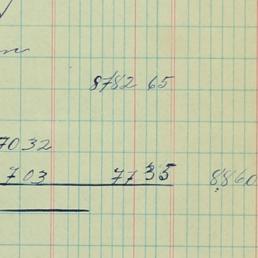 8782 65
7032
703 7735 8860